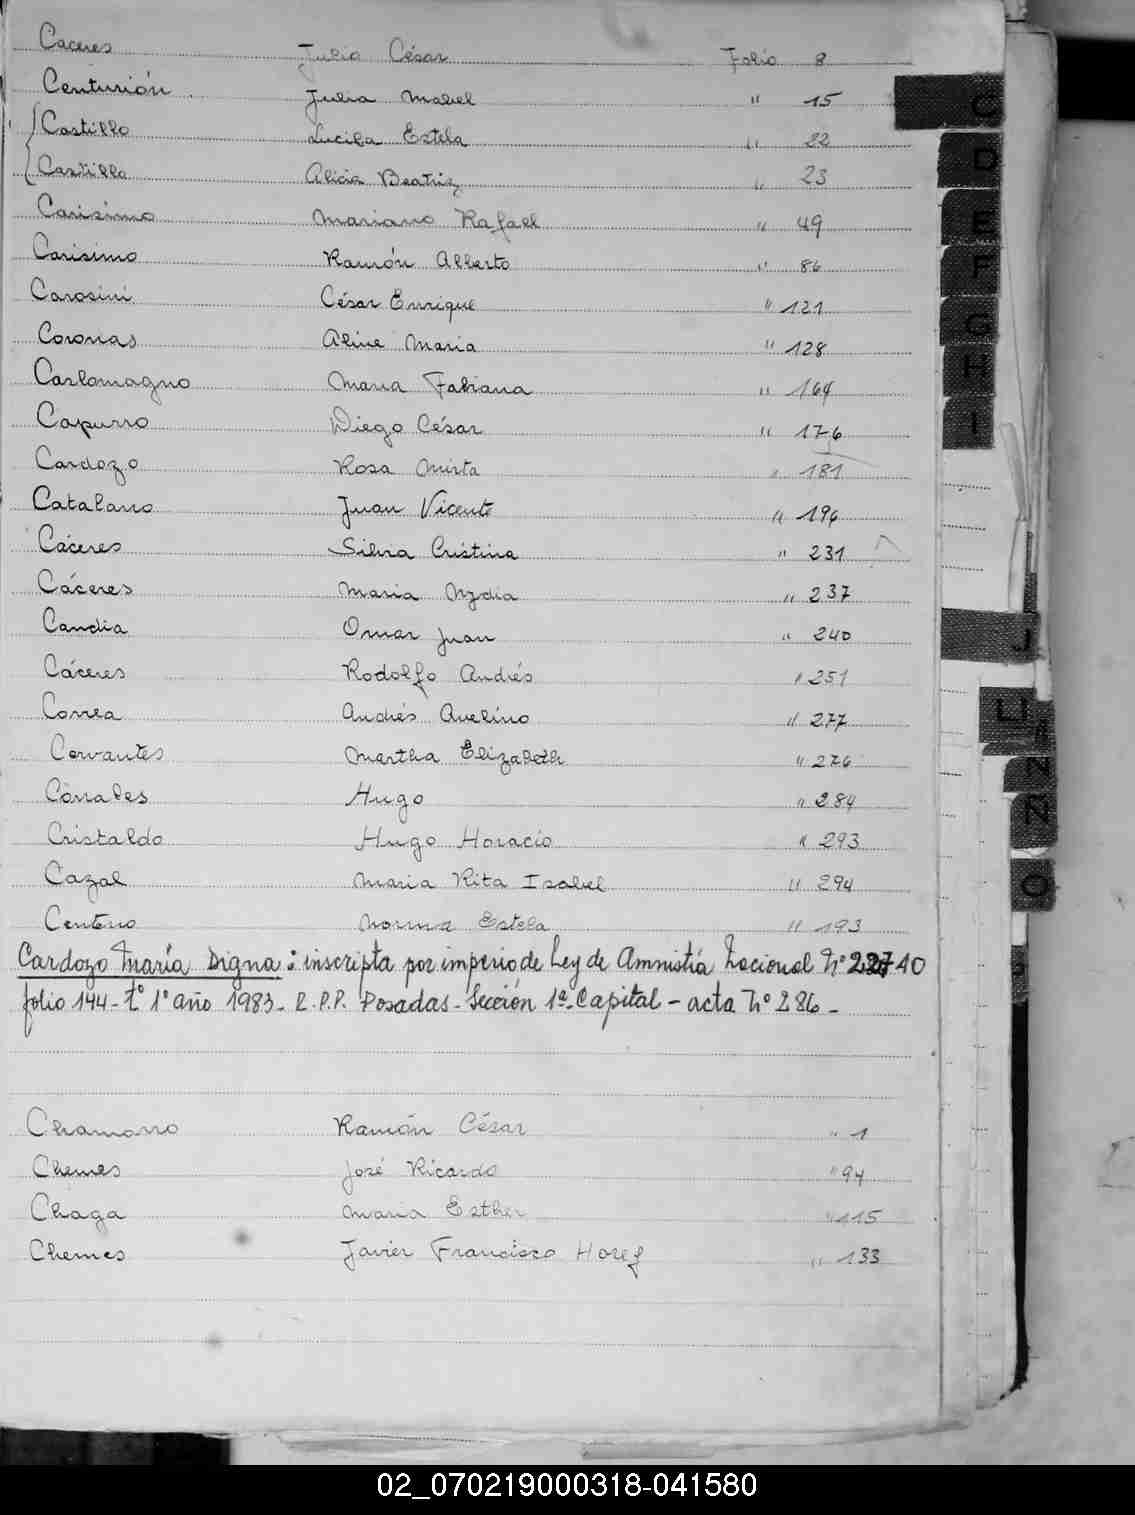 Caceres Julio César Folio 8
Centurión Julia Mabel " 15
Castillo Lucila Estela " 22
Castillo Alicia Beatriz " 23
Carisimo Mariano Rafael " 49
Carisimo Ramón Alberto " 86
Carosini César Enrique " 121
Coronas Aline Maria " 128
Carlomagno Maria Fabiana " 164
Capurro Diego César " 176
Cardozo Rosa Mirta " 181
Catalano Juan Vicente " 196
Cáceres Silvia Cristina " 231
Cáceres Maria Nydia " 237
Candia Omar Juan " 240
Cáceres Rodolfo Andrés " 251
Correa Andrés Avelino " 277
Cervantes Martha Elizabeth " 276
Corrales Hugo " 284
Cristaldo Hugo Horacio " 293
Cazal Maria Rita Isabel " 294
Centeno Norma Estela " 193
Cardozo María Digna: inscripta por imperio de Ley de Amnistía Nacional Nº 10
folio 144 - tº 1º año 1983 - R.P.P. Posadas - Sección 1ª - Capital - acta Nº 286 -
Chamorro Ramón César " 1
Chemes José Ricardo " 94
Chaga Maria Esther " 115
Chemes Javier Francisco Horef " 133
C
D
E
F
G
H
I
J
LL
N
Ñ
O
02_070219000318-041580